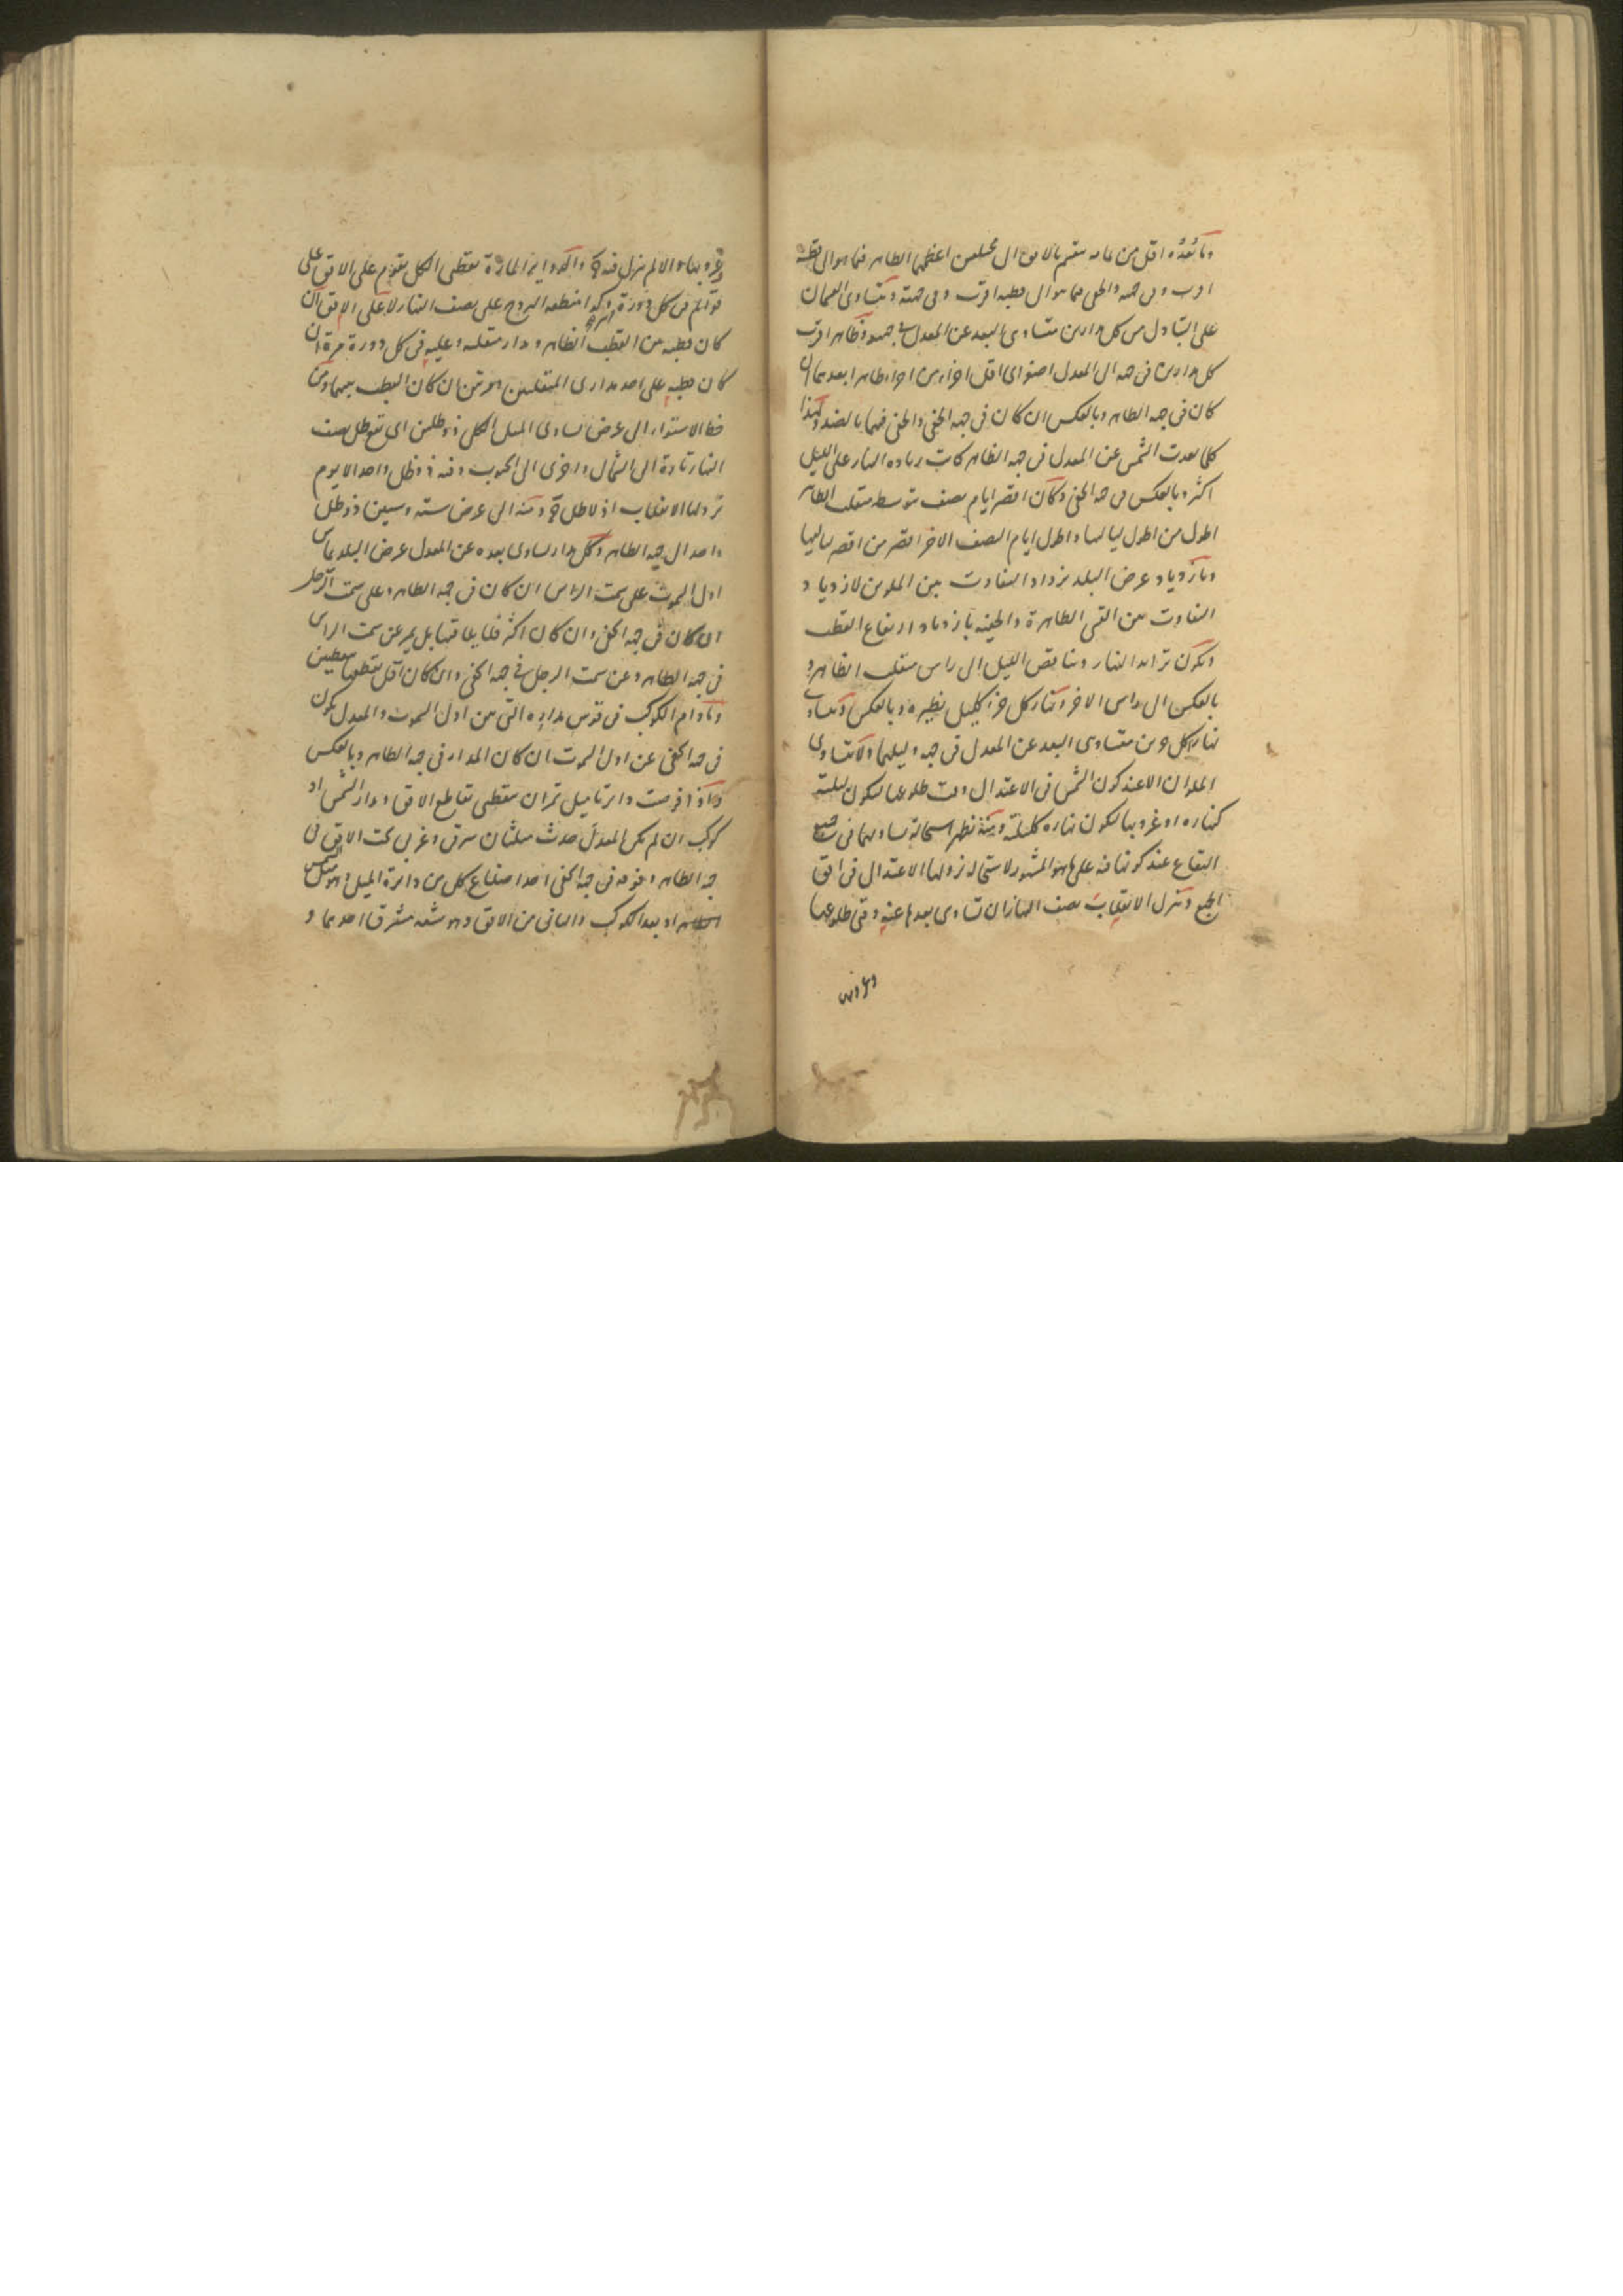 وما بعده اقل من ينقسم بالافق الى مختلفين اعظمهما الظاهر فيما هو الى قطبه
اقرب وفى جهته والخفى فيما هو الى قطبه اقرب وفى جهته وتتساوى القسمان
على التبادل من كل مدارين متساوى البعد عن المعدل فى جهتيه وظاهر اقرب
كل مدارين فى جهة الى المعدل اصغر اى اقل اجزاء من اجزاء ظاهر ابعدهما ان
كان فى جهة الظاهر وبالعكس ان كان فى جهة الخفى والخفى فيهما بالضد ولهذا
كلما بعدت الشمس عن المعدل فى جهة الظاهر كانت زيادة النهار على الليل
اكثر وبالعكس فى جهة الخفى وكان اقصر ايام نصف يتوسطه منقلب الظاهر
اطول من اطول لياليها واطول ايام النصف الاخر اقصر من اقصر لياليها
وبازدياد عرض البلد يزداد التفاوت بين الملوين لازدياد
التفاوت بين القسى الظاهرة والخفية بازدياد ارتفاع القطب
ويكون تزايد النهار وتناقص الليل الى راس منقلب الظاهر و
بالعكس الى راس الاخر ونهار كل جزء كليل نظيره وبالعكس وتساوى
نهارا كل جزئين متساوى البعد عن المعدل فى جهة وليلهما ولا يتساوى
الملوان الا عند كون الشمس فى الاعتدال وقت طلوعها ليكون ليلته
كنهاره او غروبها ليكون نهاره كليلته ومنه يظهر استحالة تساويهما فى جميع
البقاع عند كونها فيه على ما هو المشهور لاستحالة نزولها الاعتدال فى افق
الجميع وتنزل الانقلاب نصف النهار ان تساوى بعدها عنه وقتى طلوعها
وغروبها
وغروبها والا لم ينزل فيه والدوائر المارة بقطبى الكل يقوم على الافق على
قوائم فى كل دورة وكذا منطقة البروج على نصف النهار لا على الافق ان
كان قطبه بين القطب الظاهر ومدار منقلبه وعليه فى كل دورة مرة ان
كان قطبه على احد مدارى المنقلبين ومرتين ان كان القطب بينهما ومن
خط الاستواء الى عرض يساوى الميل الكلى ذو ظلين اى يقع ظل نصف
النهار تارة الى الشمال واخرى الى الجنوب وفيه ذو ظل واحد الا يوم
نزولها الانقلاب اذ لا ظل ومنه الى عرض ستة وستين ذو ظل
واحد الى جهة الظاهر وكل مدار يساوى بعده عن المعدل عرض البلد يماس
اول السموت على سمت الراس ان كان فى جهة الظاهر وعلى سمت الرجل
ان كان فى جهة الخفى وان كان اكثر فلا يلاقيها بل يمر عن سمت الراس
فى جهة الظاهر وعن سمت الرجل فى جهة الخفى وان كان اقل يقطعها بنقطتين
وما دام الكوكب فى قوس مداره التى بين اول السموت والمعدل يكون
فى جهة الخفى عن اول السموت ان كان المدار فى جهة الظاهر وبالعكس
واذا فرضت دائرتا ميل تمران بنقطتى تقاطع الافق ومدار الشمس او
كوكب ان لم يكن المعدل حدث مثلثان شرقى وغربى تحت الافق فى
جهة الظاهر وفوقه فى جهة الخفى احد اضلاع كل من دائرة الميل وهو ميل الشمس
او بعد الكوكب والثانى من الافق وهو سعة مشرق احدهما و